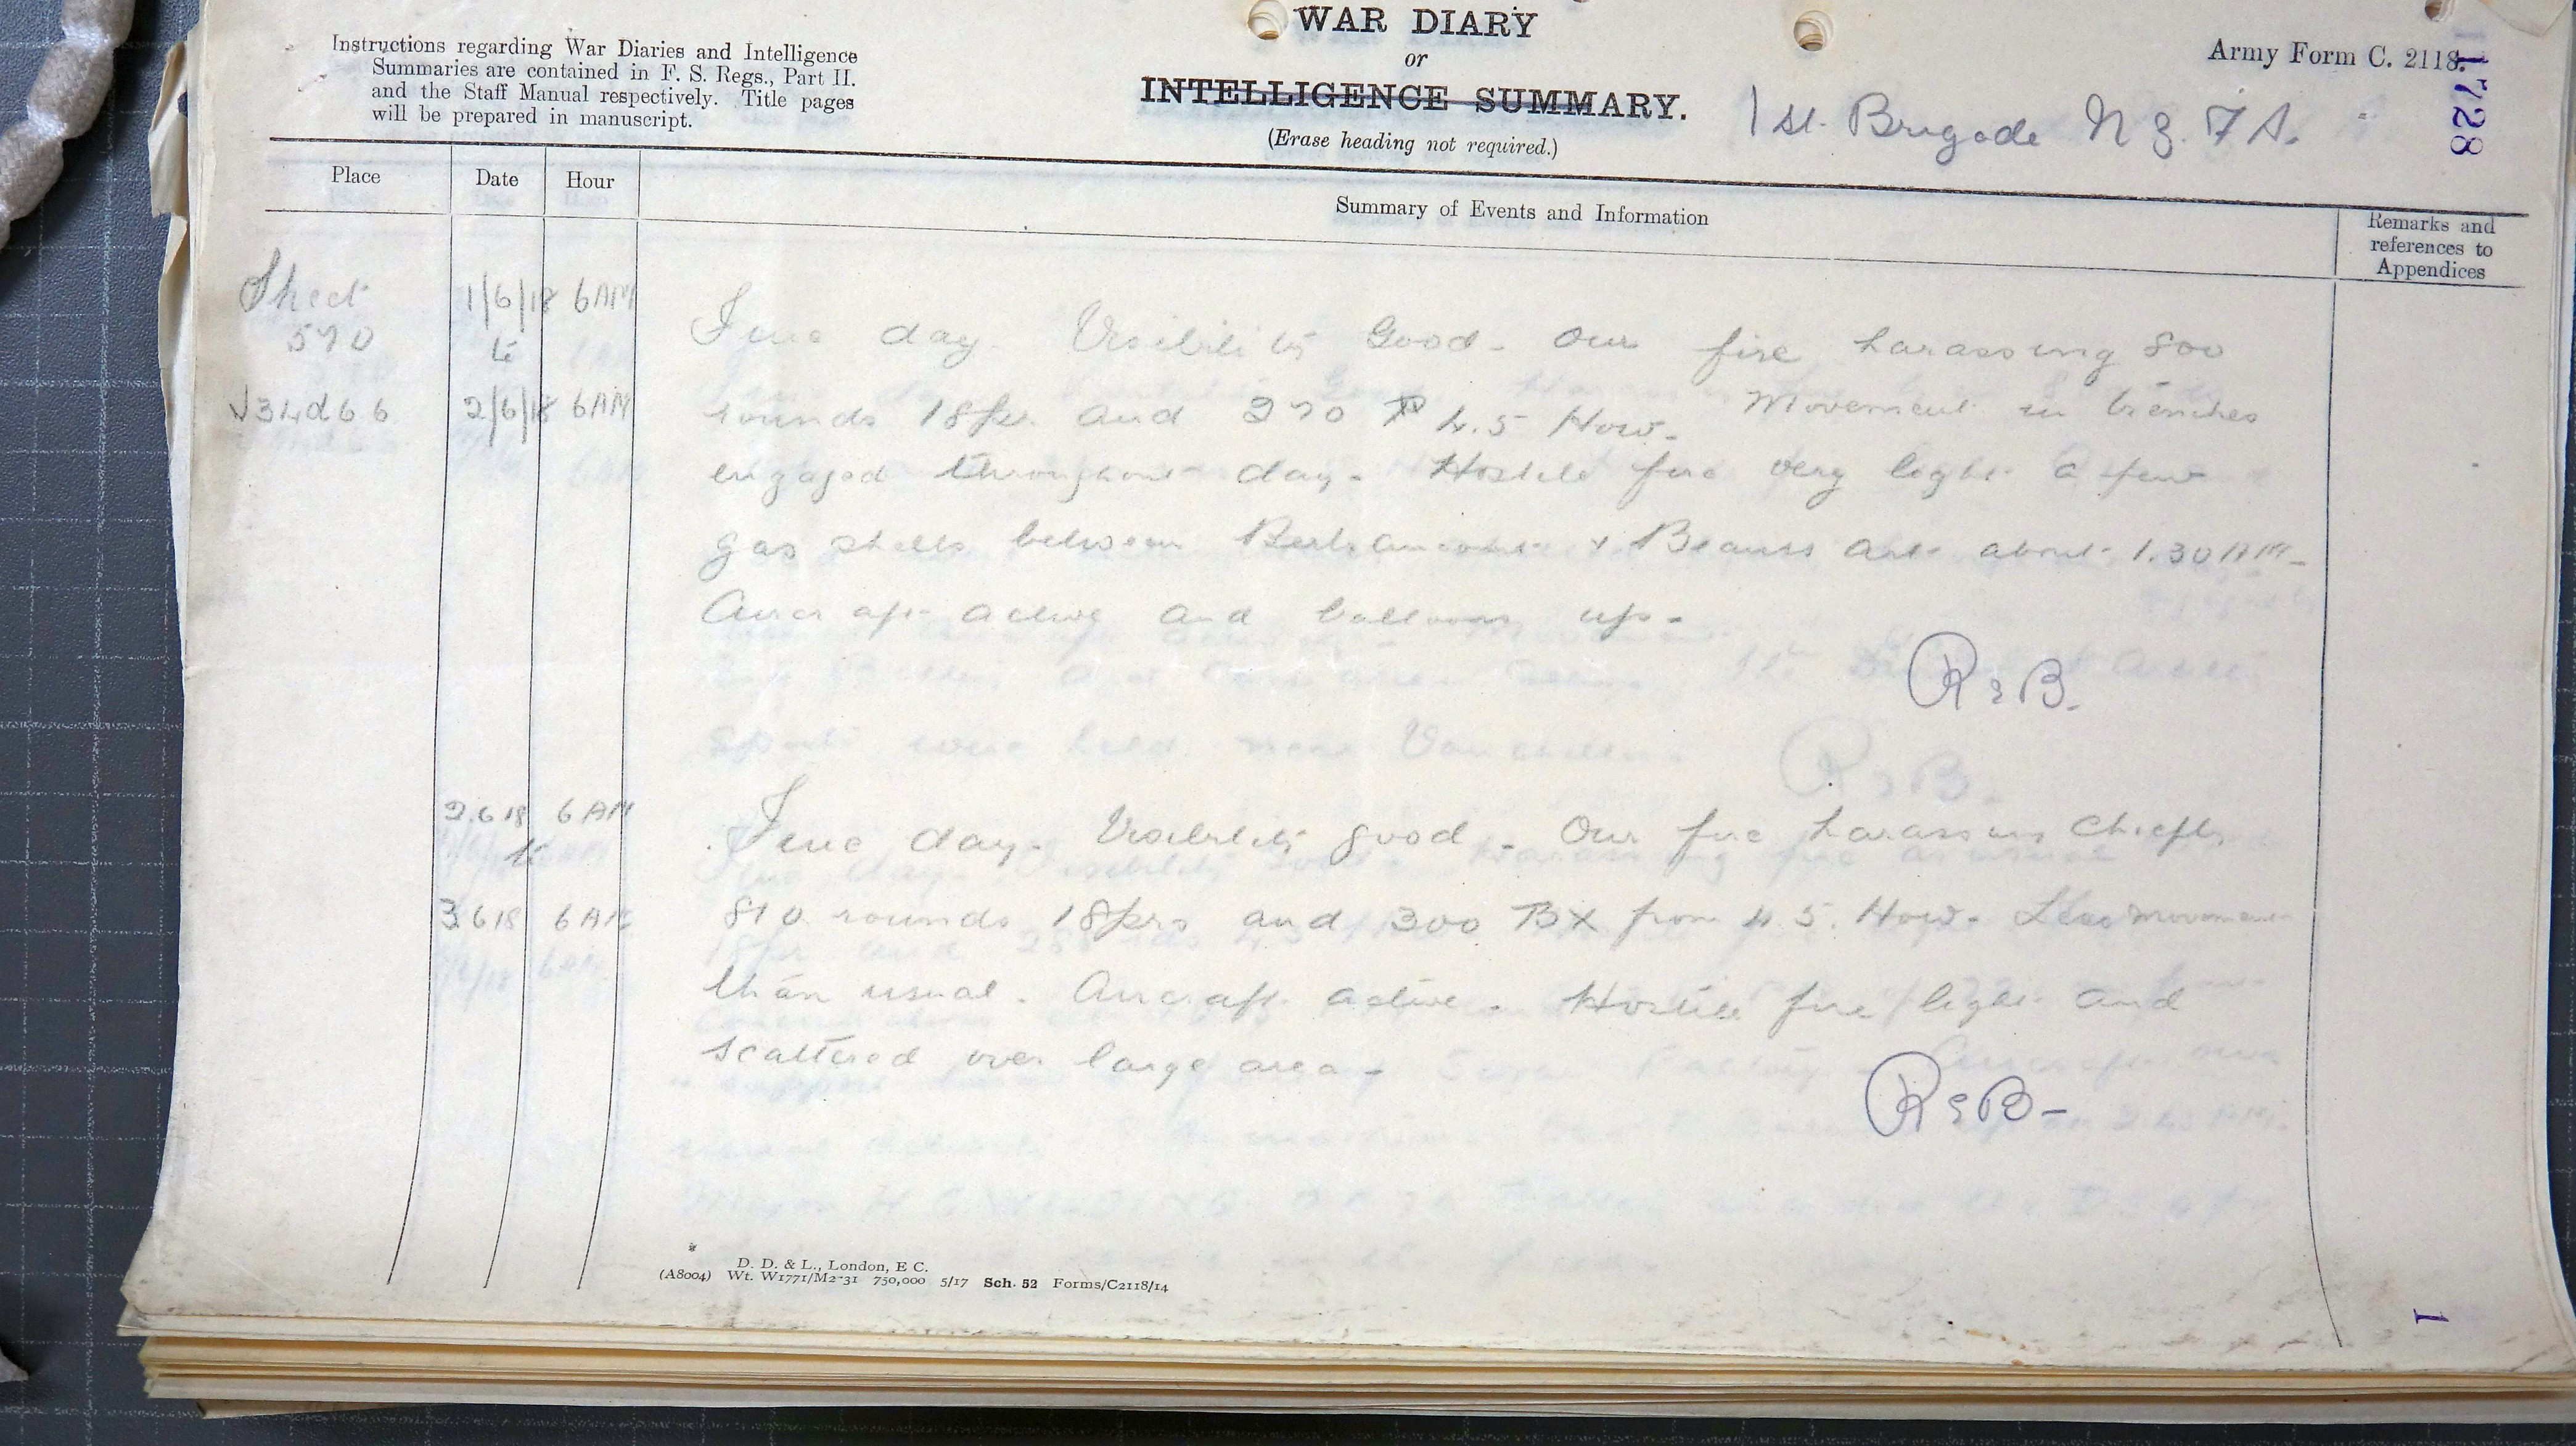 Instructions regarding War Diaries and Intelligence
Summaries are contained in F. S. Regs., Part II.
and the Staff Manual respectively. Title pages
will be prepared in manuscript.
WAR DIARY
or
INTELLIGENCE SUMMARY.
(Erase heading not required.)
Army Form C. 2118.
11728
1st Brigade N Z. F A.
Place Date Hour Summary of Events and Information
Remarks and
references to
Appendices
Sheet 1/6/18 6AM
57D to
J34d66 2/6/18 6AM
Fine day. Visibility Good. Our fire harassing 800
rounds 18pr and 270 4.5 How. Movement in trenches
engaged throughout day. Hostile fire very light a few
gas shells between Bertrancourt & Beauss art about 1.30 AM.
Aircraft active and balloons up.
R S B.
2.6 18 6 AM
to
3.6 18 6 AM
Fine day. Visibility good. Our fire harassing chiefly
810 rounds 18prs and 300 BX from 4.5. How. Less movement
than usual. Aircraft active. Hostile fire light and
scattered over large area.
R S B
D. D. & L., London, E C.
(A8004) Wt. W1771/M2-31 750,000 5/17 Sch. 52 Forms/C2118/14
1